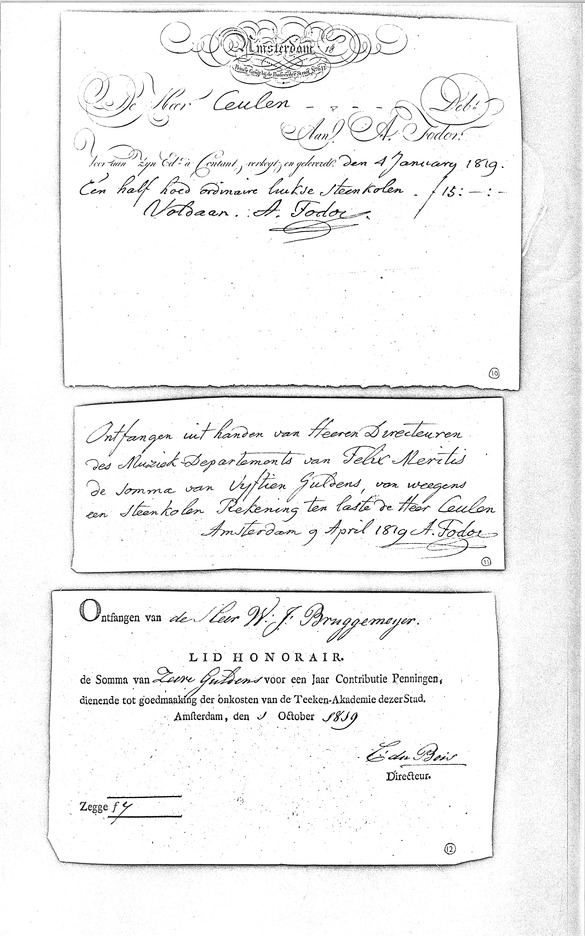 Amsterdam, 18
De Heer Ceulen - - - - Debt
Aan A. Fodor.
Voor aan zijn Ed. à Contant, verkogt, en geleverd. den 4 January 1819.
Een half hoed ordinaire luikse steenkolen. f 15:-:-
Voldaan. A. Fodor.
10
Ontfangen uit handen van Heeren Directeuren
des Muziek Departements van Felix Meritis
de somma van Vyftien Guldens, van weegens
een steenkolen Rekening ten laste de Heer Ceulen
Amsterdam 9 April 1819 A. Fodor
11
Ontfangen van de Heer W. J. Bruggemeyer.
LID HONORAIR.
de Somma van Zeeve Guldens voor een Jaar Contributie Penningen,
dienende tot goedmaaking der onkosten van de Teeken-Akademie dezer Stad.
Amsterdam, den 1 October 1819
C. du Bois
Directeur.
Zegge f 7
12